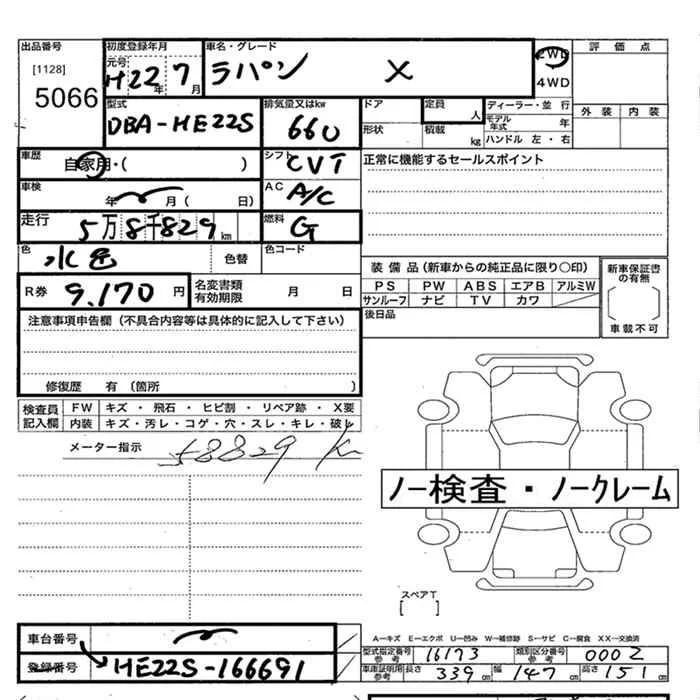 出品番号 初度登録年月 車名・グレード 2WD 評価点
[1128] 元号 H22年 7月 ラパン X 4WD
5066 型式 排気量又はkw ドア 定員 人 ディーラー・並 行 外装 内装
DBA-HE22S 660 形状 積載 kg モデル年式 年
ハンドル 左・右
車歴 自家用・( ) シフト CVT 正常に機能するセールスポイント
車検 年 月( 日) AC A/C
走行 5万8千829km 燃料 G
色 水色 色替 色コード
R券 9.170円 名変書類有効期限 月 日 装備品(新車からの純正品に限り○印) 新車保証書の有無
PS PW ABS エアB アルミW
サンルーフ ナビ TV カワ
後日品 車載不可
注意事項申告欄(不具合内容等は具体的に記入して下さい)
修復歴 有(箇所 )
検査員記入欄 FW キズ・飛石・ヒビ割・リペア跡・X要
内装 キズ・汚レ・コゲ・穴・スレ・キレ・破レ
メーター指示 58829 Km
ノー検査・ノークレーム
スペアT
[ ]
車台番号 A−キズ E−エクボ U−凹み W−補修跡 S−サビ C−腐食 XX−交換済
登録番号 HE22S-166691 型式指定番号参考 16173 類別区分番号参考 0002
車庫証明用参考 長さ 339cm 幅 147cm 高さ 151cm